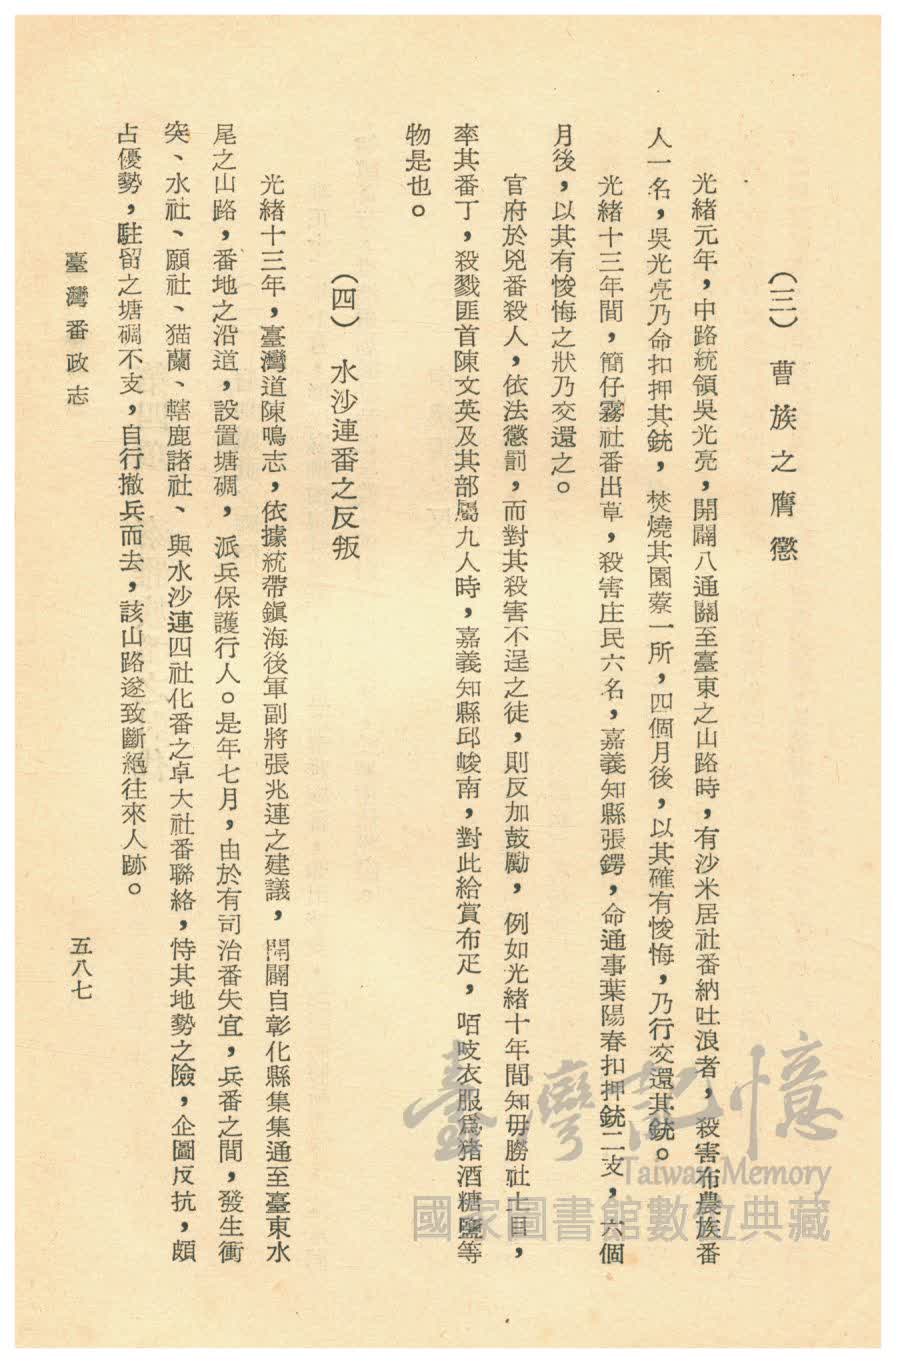 (三) 曹族之膺懲
光緒元年，中路統領吳光亮，開闢八通關至臺東之山路時，有沙米居社番納吐浪者，殺害布農族番
人一名，吳光亮乃命扣押其銃，焚燒其園藔一所，四個月後，以其確有悛悔，乃行交還其銃。
光緒十三年間，簡仔霧社番出草，殺害庄民六名，嘉義知縣張鍔，命通事葉陽春扣押銃二支，六個
月後，以其有悛悔之狀乃交還之。
官府於兇番殺人，依法懲罰，而對其殺害不逞之徒，則反加鼓勵，例如光緒十年間知毋勝社土目，
率其番丁，殺戮匪首陳文英及其部屬九人時，嘉義知縣邱峻南，對此給賞布疋，咟吱衣服爲猪酒糖鹽等
物是也。
(四) 水沙連番之反叛
光緒十三年，臺灣道陳鳴志，依據統帶鎭海後軍副將張兆連之建議，開闢自彰化縣集集通至臺東水
尾之山路，番地之沿道，設置塘碉，派兵保護行人。是年七月，由於有司治番失宜，兵番之間，發生衝
突、水社、願社、猫蘭、轄鹿諸社、與水沙連四社化番之卓大社番聯絡，恃其地勢之險，企圖反抗，頗
占優勢，駐留之塘碉不支，自行撤兵而去，該山路遂致斷絕往來人跡。
臺灣番政志
五八七
臺灣記憶
Taiwan Memory
國家圖書館數位典藏